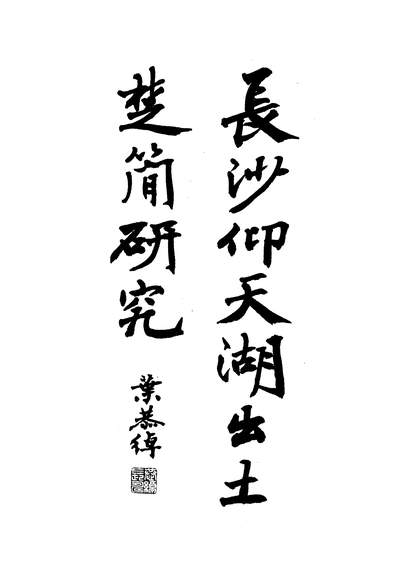 長沙仰天湖出土
楚简研究
葉恭綽